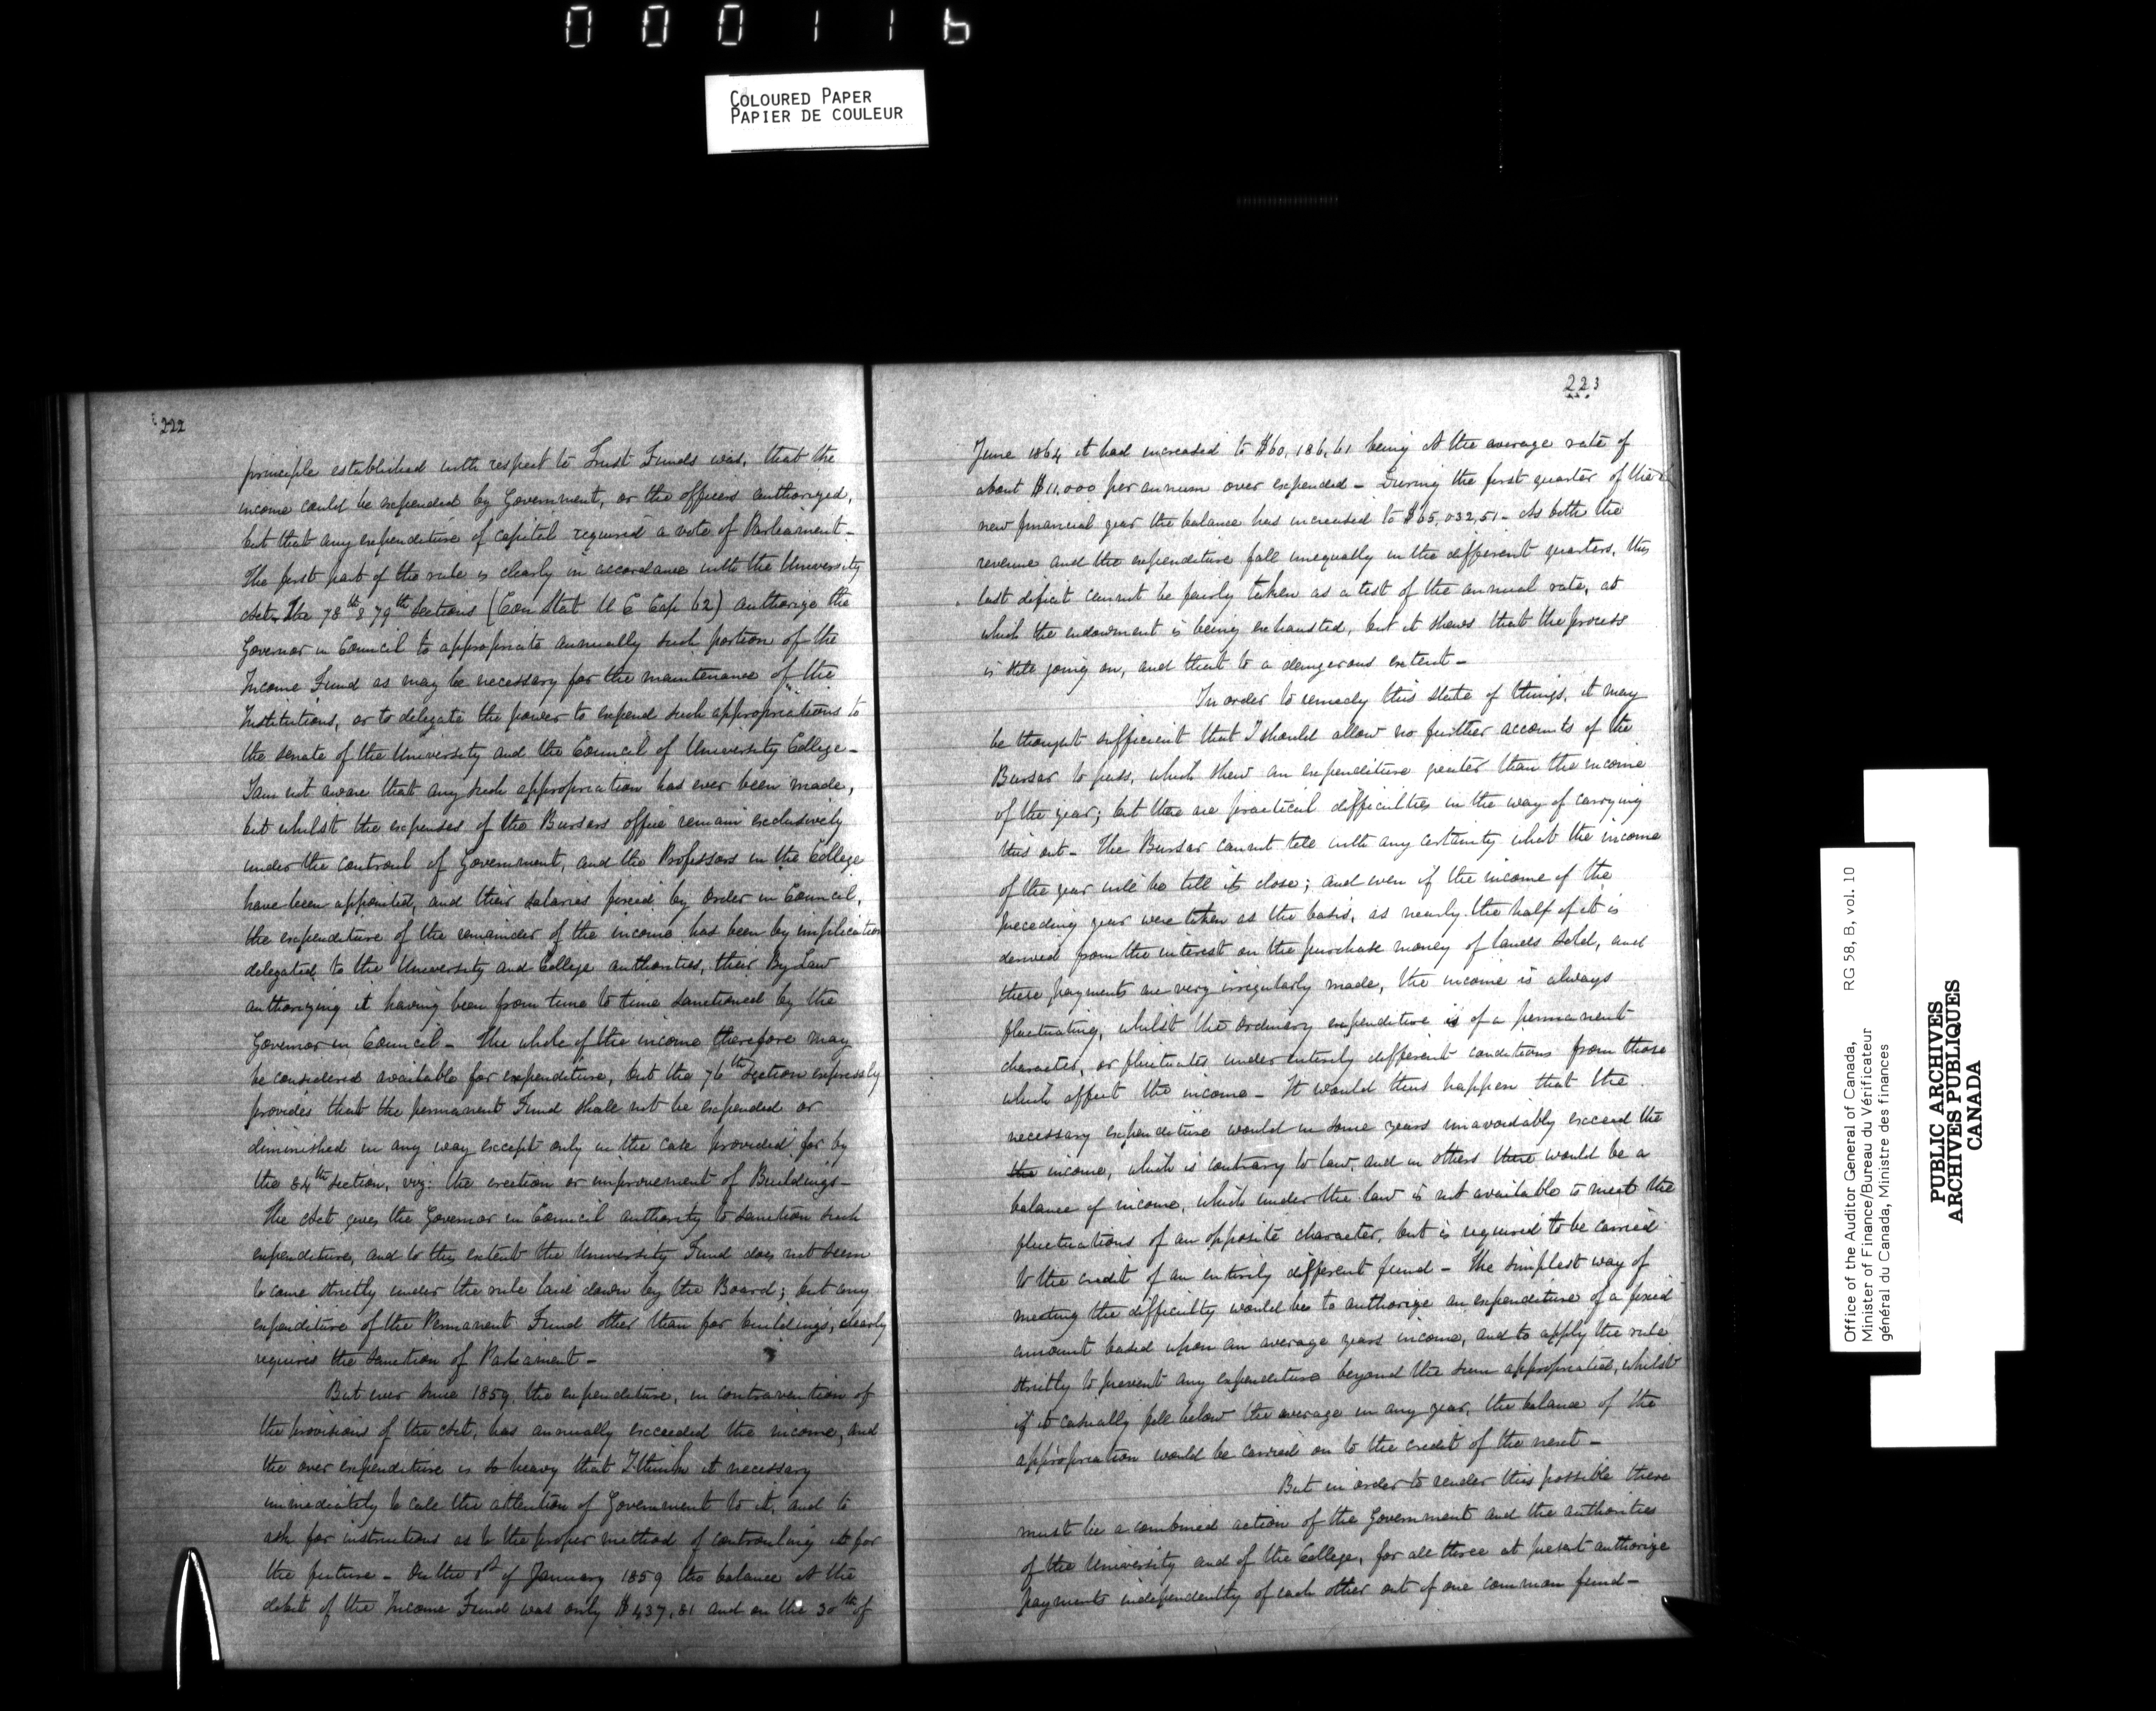 000116
COLOURED PAPER
PAPIER DE COULEUR
222
principle established with respect to Trust Funds was, that the
income could be expended by Government, or the officers authorized,
but that any expenditure of capital required a vote of Parliament -
The first part of the rule is clearly in accordance with the University
Act. The 78th & 79th Sections (Con Stat U C Cap 62) authorize the
Governor in Council to appropriate annually such portion of the
Income Fund as may be necessary for the maintenance of the
Institutions, or to delegate the power to expend such appropriations to
the Senate of the University and the Council of University College -
I am not aware that any such appropriation has ever been made,
but whilst the expenses of the Bursars office remain exclusively
under the controul of Government, and the Professors in the College
have been appointed, and their salaries fixed by Order in Council,
the expenditure of the remainder of the income has been by implication
delegated to the University and College authorities, their By Law
authorizing it having been from time to time sanctioned by the
Governor in Council - The whole of the income therefore may
be considered available for expenditure, but the 76th Section expressly
provides that the permanent Fund shall not be expended or
diminished in any way except only in the case provided for by
the 84th Section, viz: the erection or improvement of Buildings -
The Act gives the Governor in Council authority to sanction such
expenditure, and to this extent the University Fund does not seem
to come strictly under the rule laid down by the Board; but any
expenditure of the Permanent Fund other than for buildings, clearly
requires the sanction of Parliament -
But ever since 1859, the expenditure, in contravention of
the provisions of the Act, has annually exceeded the income, and
the over expenditure is so heavy that I think it necessary
immediately to call the attention of Government to it, and to
ask for instructions as to the proper method of controuling it for
the future - On the 1st of January 1859 the balance at the
debit of the Income Fund was only $437,81 and on the 30th of
223
June 1864 it had increased to $60,186,61 being at the average rate of
about $11,000 per annum over expended - During the first quarter of the
new financial year the balance has increased to $65,032,51 - As both the
revenue and the expenditure fall unequally in the different quarters, this
last deficit cannot be fairly taken as a test of the annual rate, at
which the endowment is being exhausted, but it shews that the process
is still going on, and that to a dangerous extent -
In order to remedy this state of things, it may
be thought sufficient that I should allow no further accounts of the
Bursar to pass, which shew an expenditure greater than the income
of the year; but there are practical difficulties in the way of carrying
this out - The Bursar cannot tell with any certainty what the income
of the year will be till its close; and even if the income of the
preceding year were taken as the basis, as nearly the half of it is
derived from the interest on the purchase money of lands sold, and
these payments are very irregularly made, the income is always
fluctuating, whilst the ordinary expenditure is of a permanent
character, or fluctuates under entirely different conditions from those
which affect the income - It would thus happen that the
necessary expenditure would in some years unavoidably exceed the
the income, which is contrary to law, and in others there would be a
balance of income, which under the law is not available to meet the
fluctuations of an opposite character, but is required to be carried
to the credit of an entirely different fund - The simplest way of
meeting the difficulty would be to authorize an expenditure of a fixed
amount based upon an average years income, and to apply the rule
strictly to prevent any expenditure beyond the sum appropriated, whilst
if it casually fell below the average in any year, the balance of the
appropriation would be carried on to the credit of the next -
But in order to render this possible there
must be a combined action of the Government and the authorities
of the University and of the College, for all three at present authorize
payments independently of each other out of one common fund -
Office of the Auditor General of Canada, RG 58, B, vol. 10
Minister of Finance/Bureau du Vérificateur
général du Canada, Ministre des finances
PUBLIC ARCHIVES
ARCHIVES PUBLIQUES
CANADA